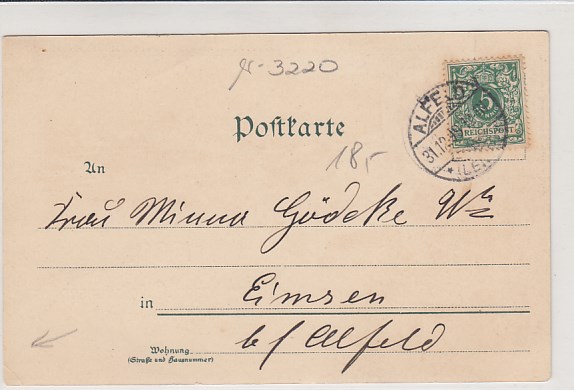 gr-3220
5
REICHSPOST
ALFELD
31.12
* (LE
Postkarte
18,-
An
Frau Minna Gödeke Wwe
in Eimsen
b/ Alfeld
Wohnung
(Straße und Hausnummer)